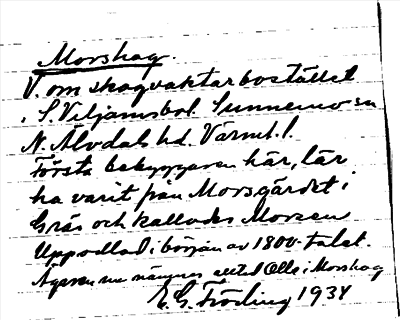 Morshag.
V. om skogvaktarbostället
i S. Viljamsbol. Sunnemo sn
N. Älvdals hd. Värml. l.
Första bebyggaren här, lär
ha varit från Morsgärdet i
Gräs och kallades Morsen
Uppodlad i början av 1800-talet.
Ägaren nu nämnes alltid Olle i Morshag
E. G. Fröding 1934